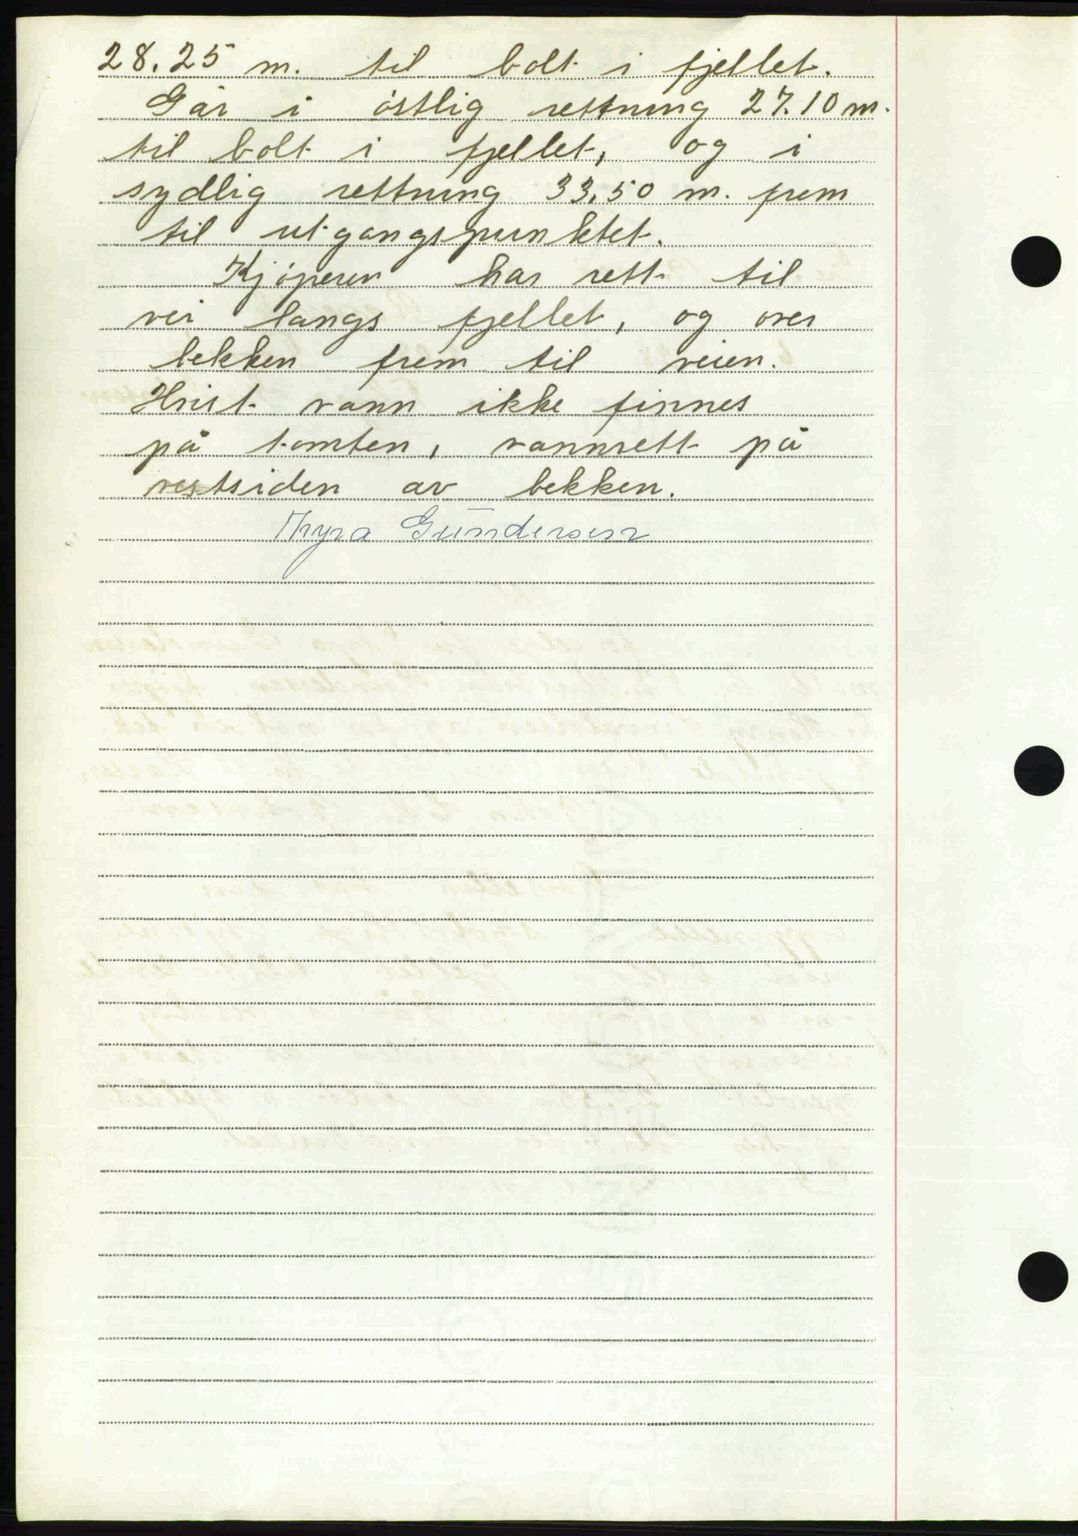 28.25 m. til bolt i fjellet.
Går i östlig rettning 27.10 m.
til bolt i fjellet, og i
sydlig rettning 33.50 m. frem
til utgangspunktet.
Kjöperen har rett til
vei langs fjellet, og over
bekken frem til veien.
Hvist vann ikke finnes
på tomten, vannrett på
vestsiden av bekken.
Thyra Gundersen